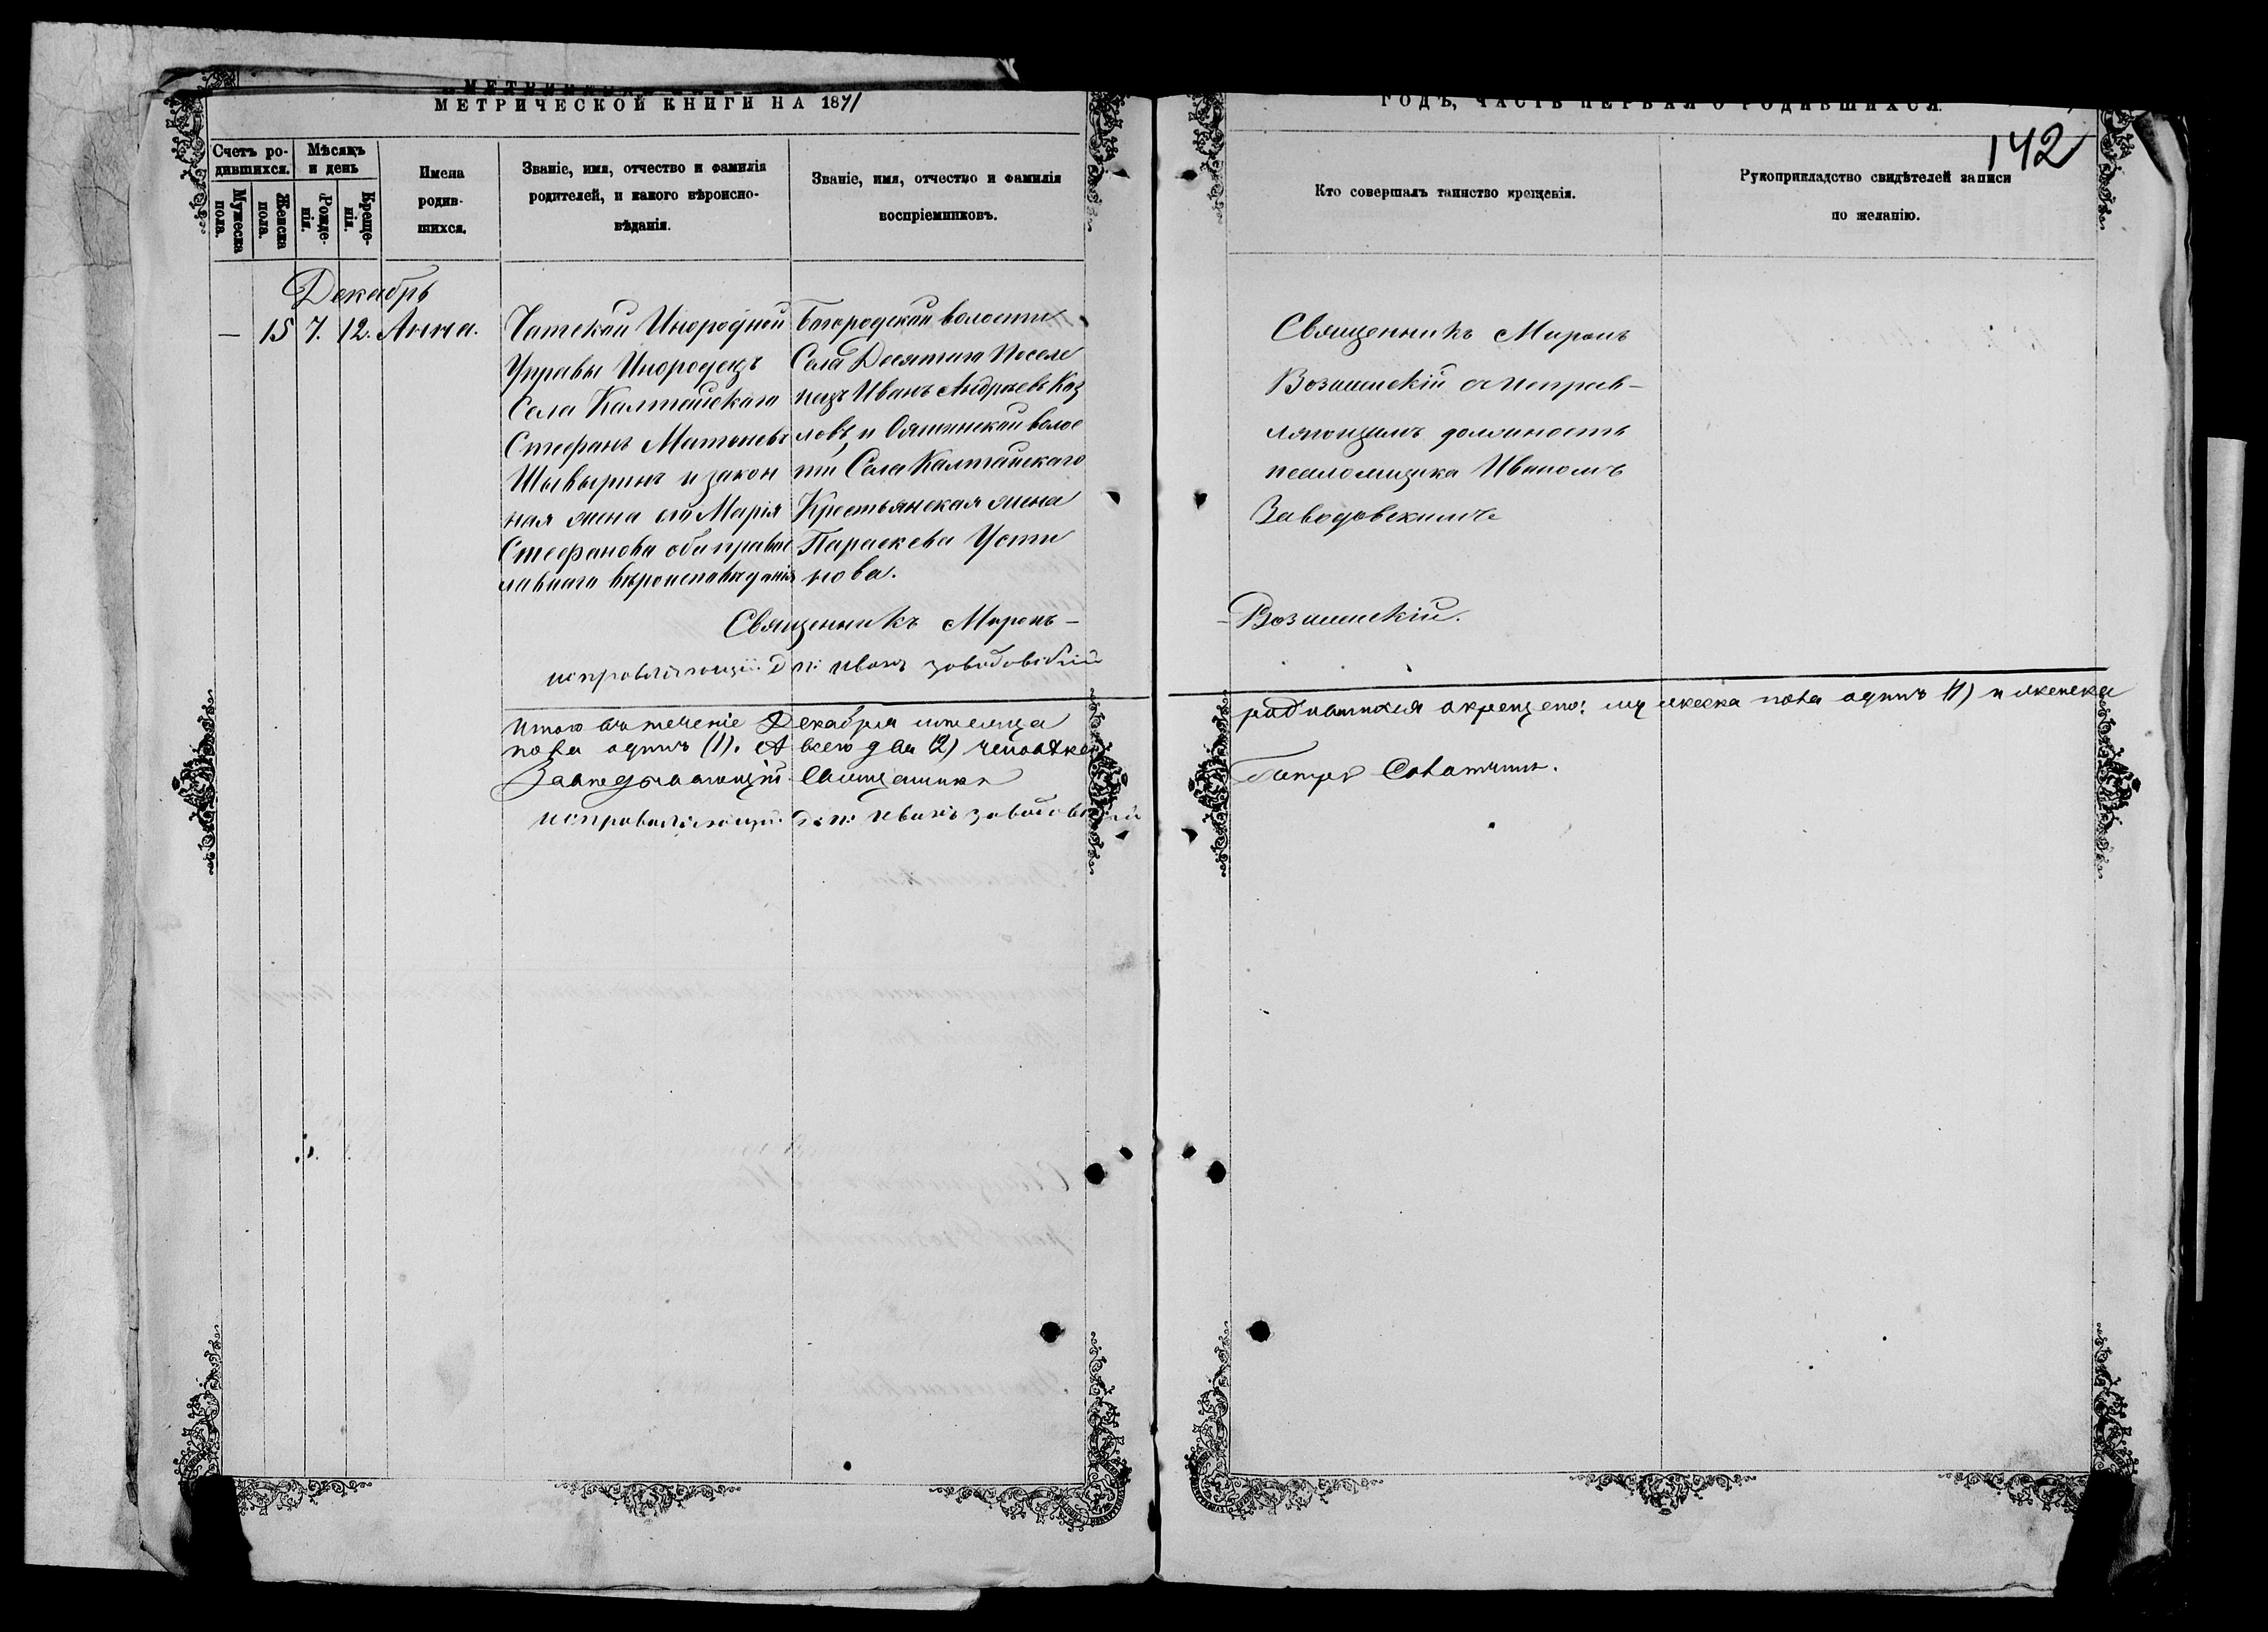 МЕТРИЧЕСКОЙ КНИГИ НА 1871
ГОДЪ, ЧАСТЬ ПЕРВАЯ О РОДИВШИХСЯ.
142
Счетъ ро-
дившихся.
Мужеска
пола.
Женска
пола.
Мѣсяцъ
и день
Рожде-
нія.
Креще-
нія.
Имена
родив-
шихся.
Званіе, имя, отчество и фамилія
родителей, и какого вѣроиспо-
вѣданія.
Званіе, имя, отчество и фамилія
воспріемниковъ.
Кто совершалъ таинство крещенія.
Рукоприкладство свидѣтелей записи
по желанію.
Декабрь
— 15 7. 12. Анна.
Чатской Инородной
Управы Инородецъ
Села Калтайскаго
Стефанъ
и закон
ная жена его Марія
Стефанова оба правос
лавнаго вѣроисповѣданія
Богородской волости
Села Десятаго Поселе
нецъ Иванъ Андреевъ Коз
ловъ, и Ояшинской волос
ти Села Калтайскаго
Крестьянская жена
Параскева Усти
нова.
Священникъ Миронъ
съ исправ-
ляющимъ должность
псаломщика Иваномъ
Заводовскимъ
Священникъ Миронъ –
исправляющій Д. П: Иванъ Заводовскій
Итого въ теченіе Декабря мѣсяца
родившихся и крещено: мужеска пола одинъ (1) и женска
пола одинъ (1). А всего два (2) человѣка
Завѣдывающій Священникъ
Петръ
исправляющій. Д: П: Иванъ Заводовскій